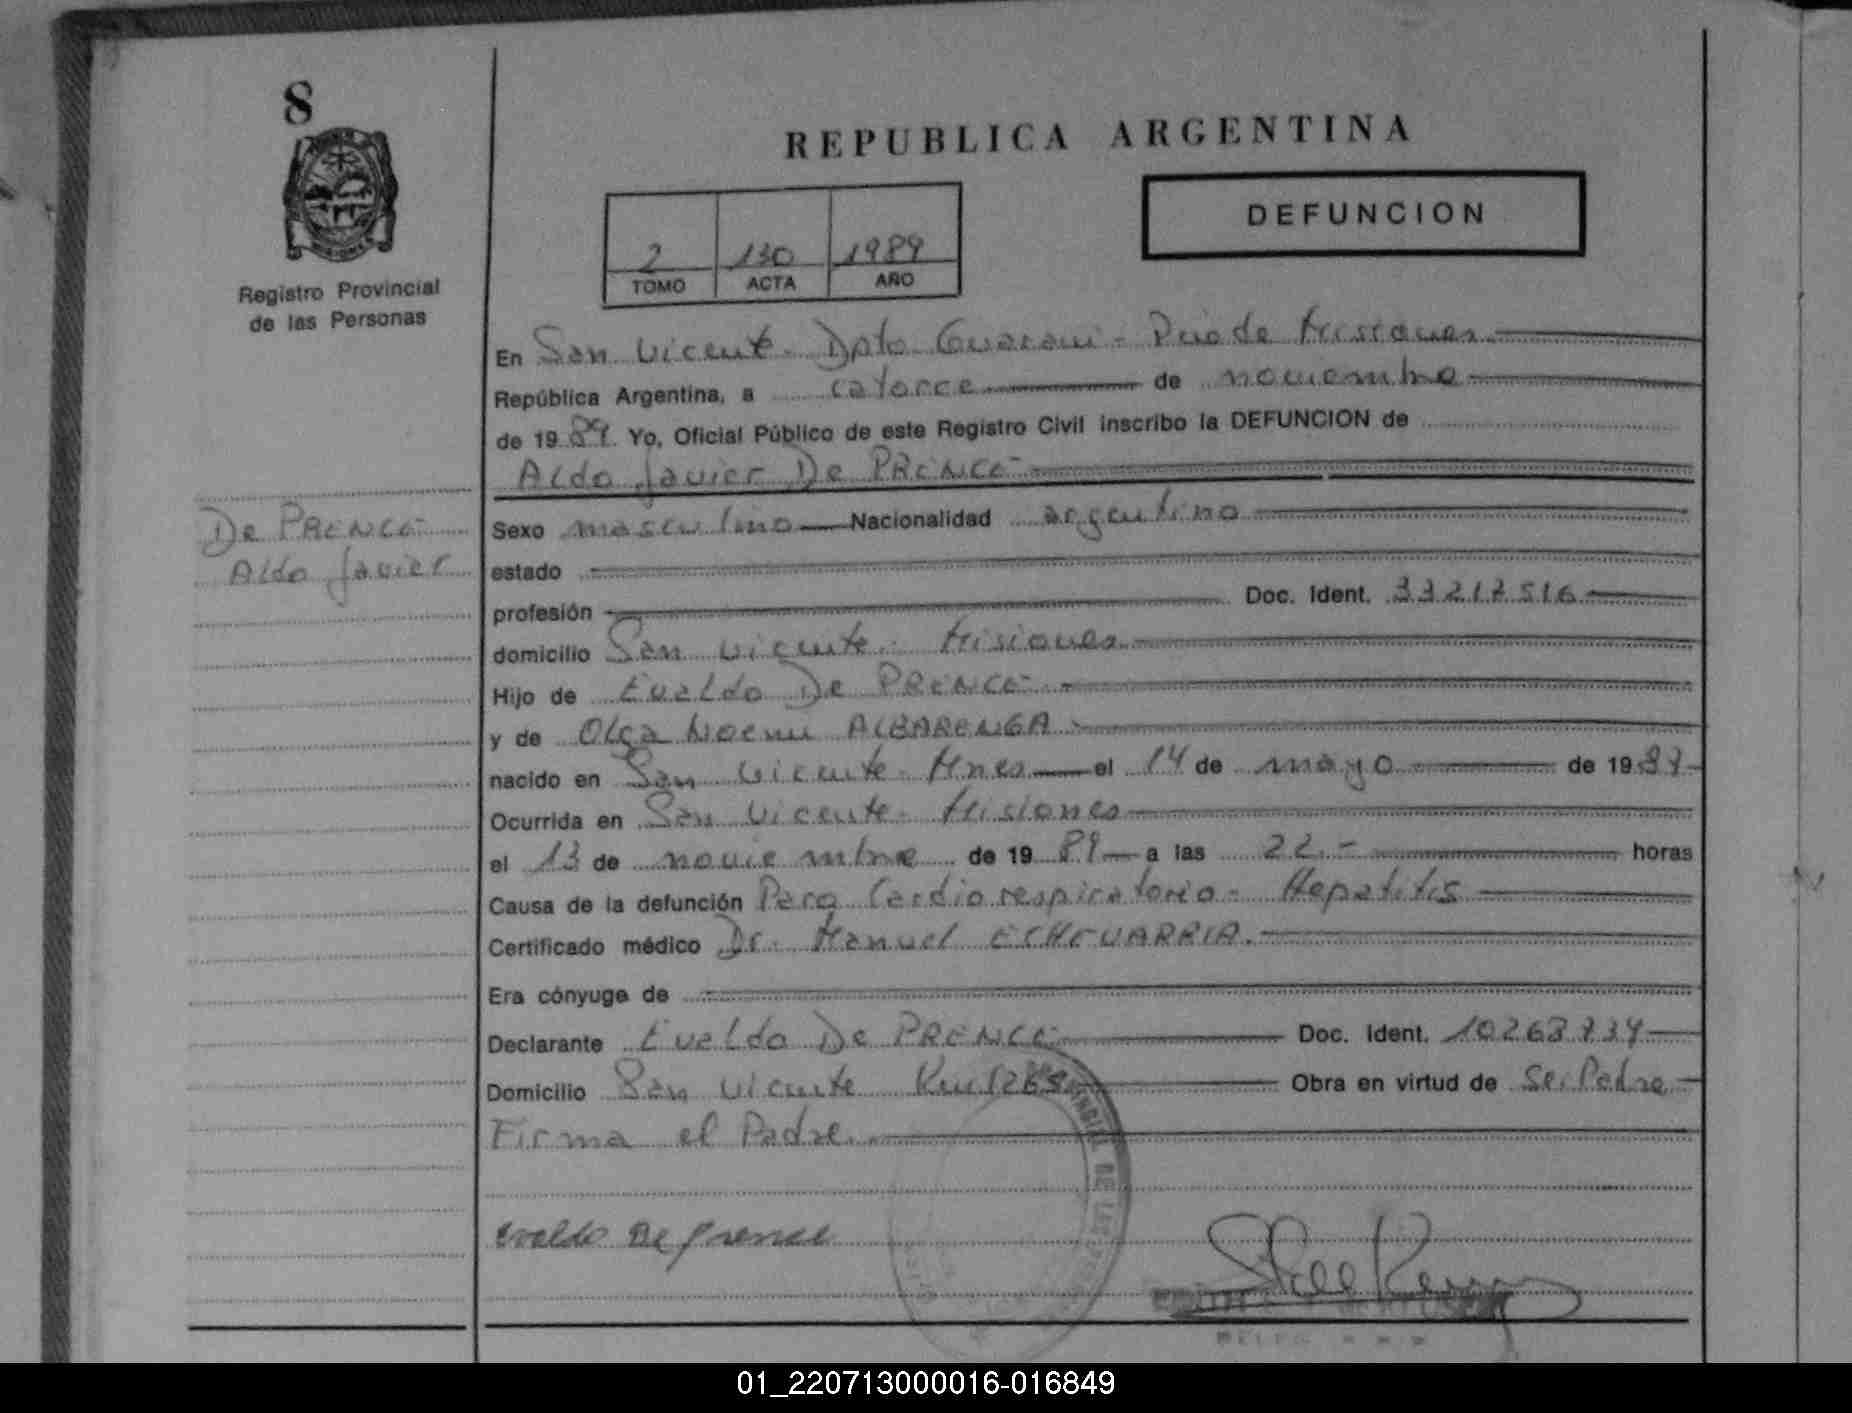 8
REPUBLICA ARGENTINA
DEFUNCION
2 130 1989
TOMO ACTA AÑO
Registro Provincial
de las Personas
En San Vicente - Dpto Guarani - Pcia de Misiones
República Argentina, a catorce de noviembre
de 1989 Yo, Oficial Público de este Registro Civil inscribo la DEFUNCION de
Aldo Javier De PRENCE
De PRENCE
Aldo Javier
Sexo masculino Nacionalidad argentino
estado
profesión Doc. Ident. 33217516
domicilio San Vicente - Misiones
Hijo de Evaldo De PRENCE
y de Olga Noemi ALBARENGA
nacido en San Vicente - Mnes el 14 de mayo de 1987
Ocurrida en San Vicente - Misiones
el 13 de noviembre de 1989 a las 22.- horas
Causa de la defunción Paro Cardiorespiratorio - Hepatitis
Certificado médico Dr. Manuel ECHEVARRIA.
Era cónyuge de
Declarante Evaldo De PRENCE Doc. Ident. 10268734
Domicilio San Vicente Km 1265 Obra en virtud de Ser Padre
Firma el Padre.
evaldo De prence
01_220713000016-016849